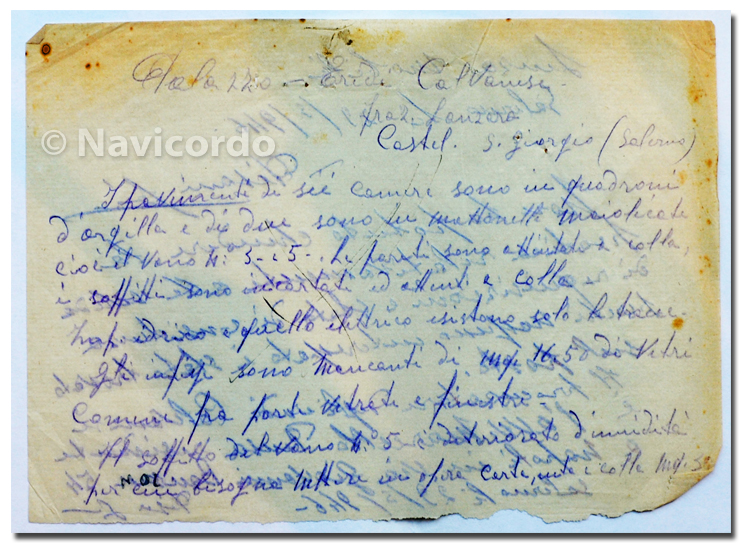 Palazzo - Eredi Calvanese
fraz. Lanzara
© Navicordo
Castel. S. Giorgio (Salerno)
I pavimenti di sei camere sono in quadroni
d'argilla e di due sono in mattonelle maiolicate
cioè il Vano N: 3 - e 5 -. Le pareti sono attintate a colla,
i soffitti sono incartati ed attinti a colla
Imp. idrico e quello elettrico esistono solo le tracce.
Gli infissi sono mancanti di mq. 16.50 di Vetri
Comuni fra porte vetrate e finestre -
Il soffitto del Vano N° 5 è deteriorato d'umidità
per cui bisogna mettere in opera carta, e colla Mq.